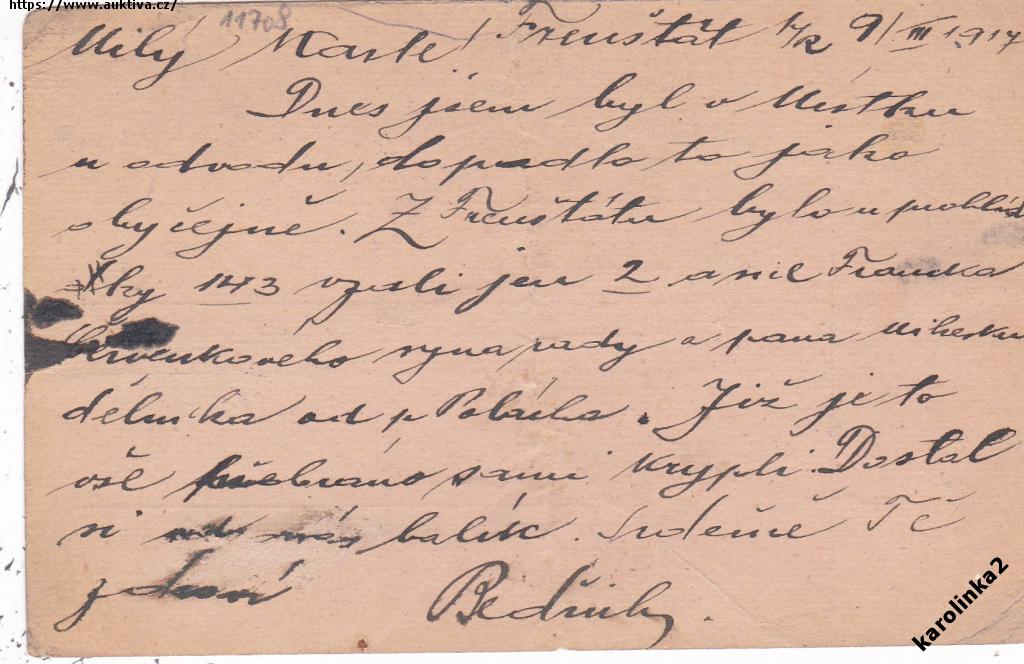 https://www.auktiva.cz/
11708
Milý Karle! Frenštát p/R 9/III 1917
Dnes jsem byl v Místku
u odvodu, dopadlo to jako
obyčejně. Z Frenštátu bylo u prohlíd
ky 143 vzali jen 2 a sic Francka
Červenkového syna rady a pana
dělníka od p
Již je to
vše přebráno samí krypli. Dostal
si od nás balík. Srdečně Tě
zdraví Bedřich.
karolinka2